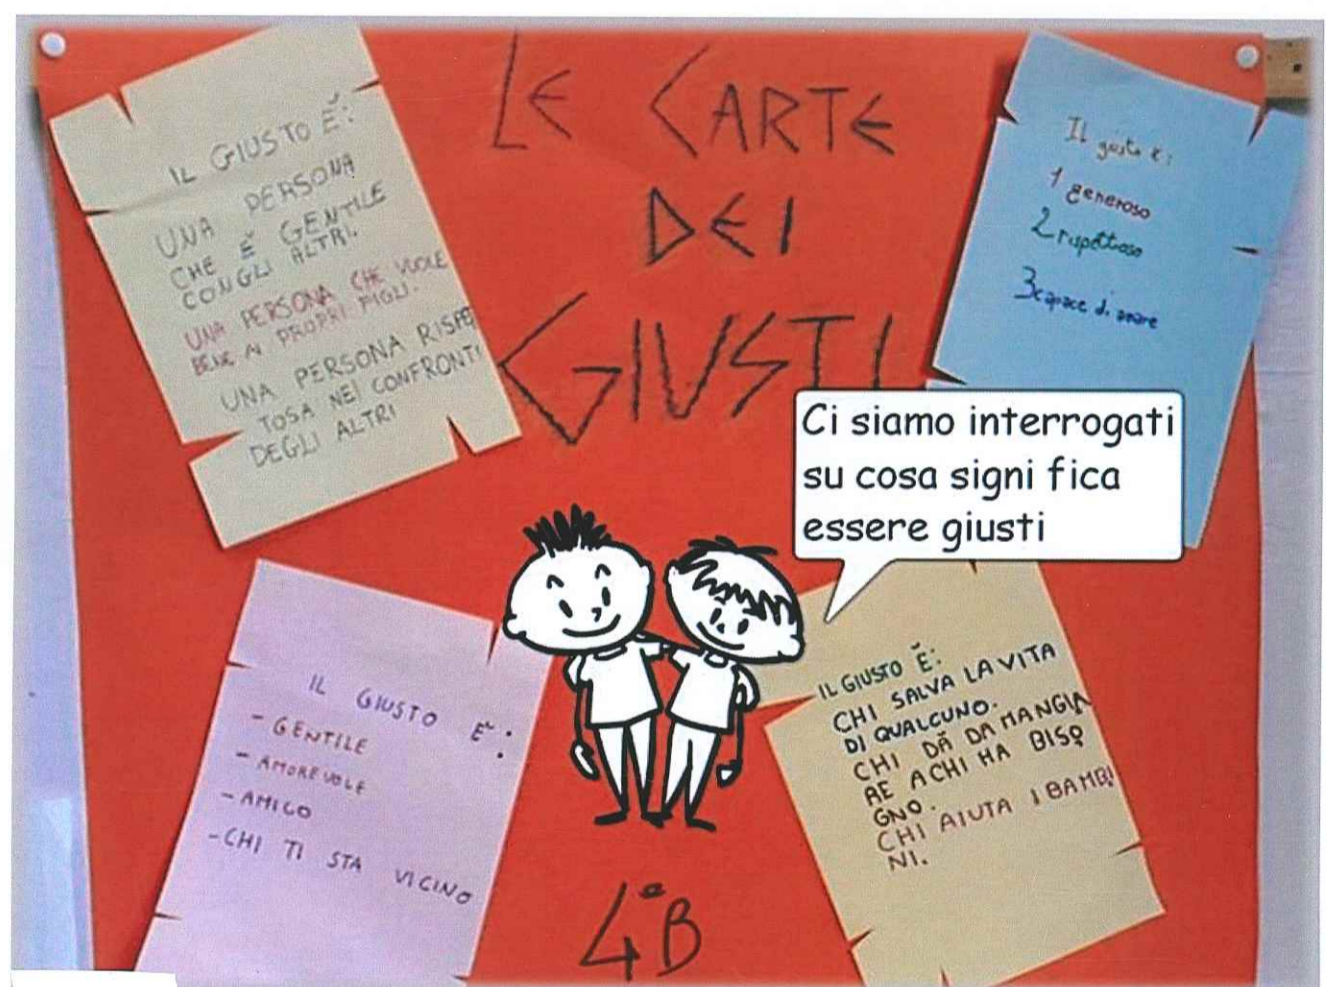 LE CARTE
DEI
GIUSTI
IL GIUSTO È:
UNA PERSONA
CHE È GENTILE
CON GLI ALTRI.
UNA PERSONA CHE VUOLE
BENE AI PROPRI FIGLI.
UNA PERSONA RISPET
TOSA NEI CONFRONTI
DEGLI ALTRI
Il giusto è:
1 generoso
2 rispettoso
3 capace di amare
Ci siamo interrogati
su cosa signi fica
essere giusti
IL GIUSTO È:
- GENTILE
- AMOREVOLE
- AMICO
- CHI TI STA VICINO
IL GIUSTO È:
CHI SALVA LA VITA
DI QUALCUNO.
CHI DÀ DA MANGIA
RE A CHI HA BISO
GNO.
CHI AIUTA I BAMBI
NI.
4ª B